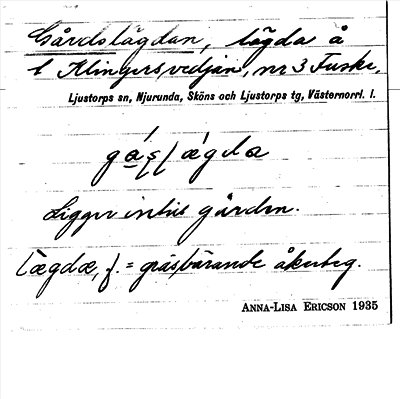 Gårdslägdan, lägda å
1 Klingersvedjan, nr 3 Fuske,
Ljustorps sn, Njurunda, Sköns och Ljustorps tg, Västernorrl. l.
Ligger intill gården.
lægdæ, f. = gräsbärande åkerteg.
ANNA-LISA ERICSON 1935